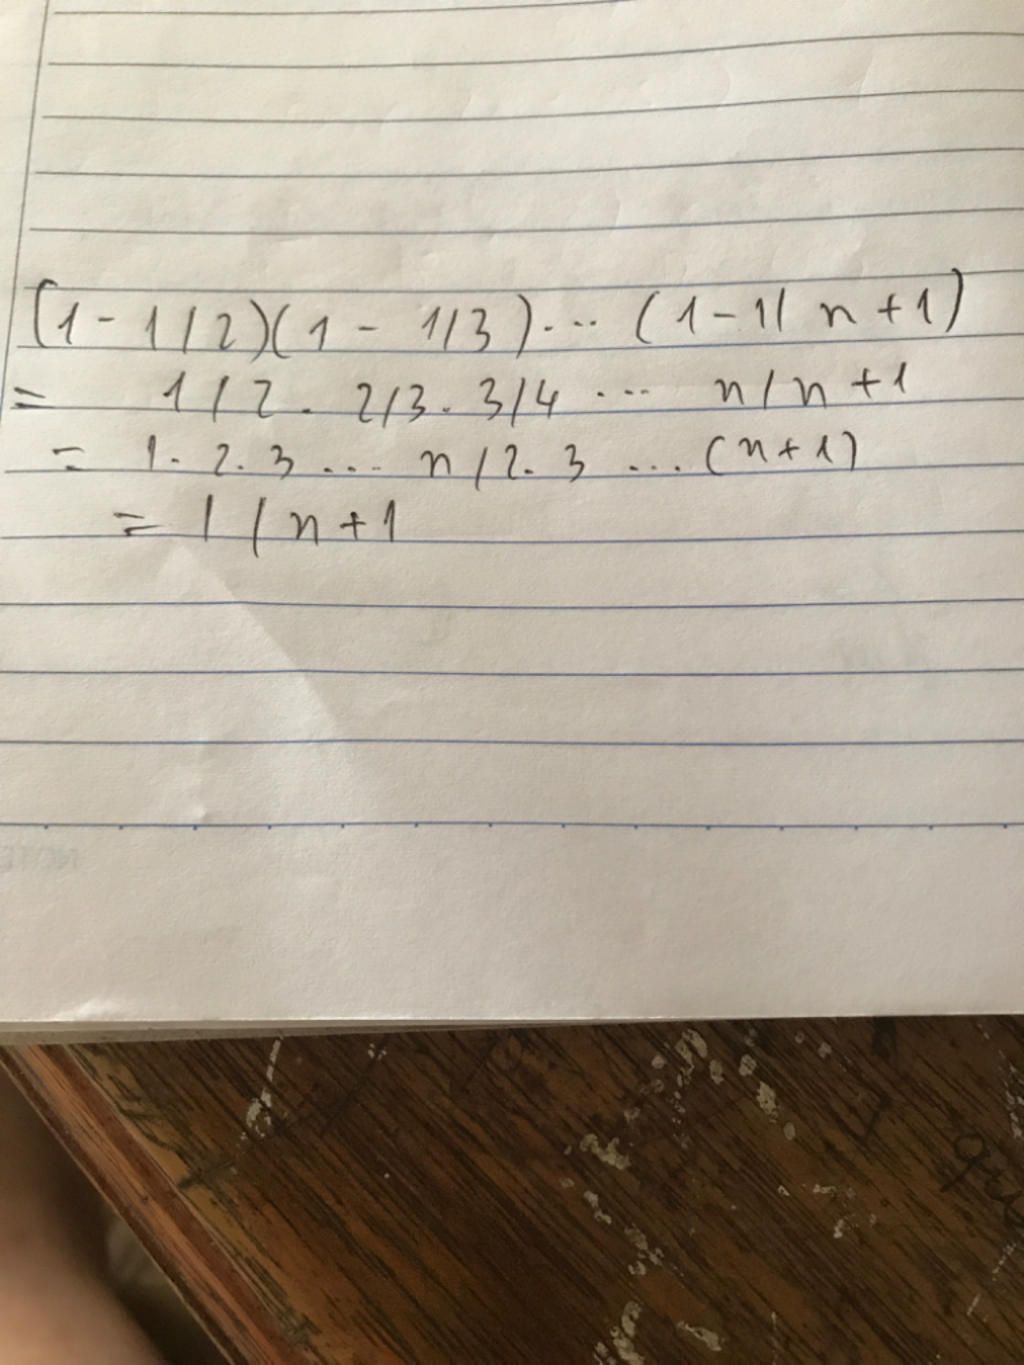 (1 - 1/2)(1 - 1/3) ... (1 - 1/ n + 1)
= 1/2 . 2/3 . 3/4 ... n/n + 1
= 1 . 2 . 3 ... n/2 . 3 ... (n + 1)
= 1/n + 1